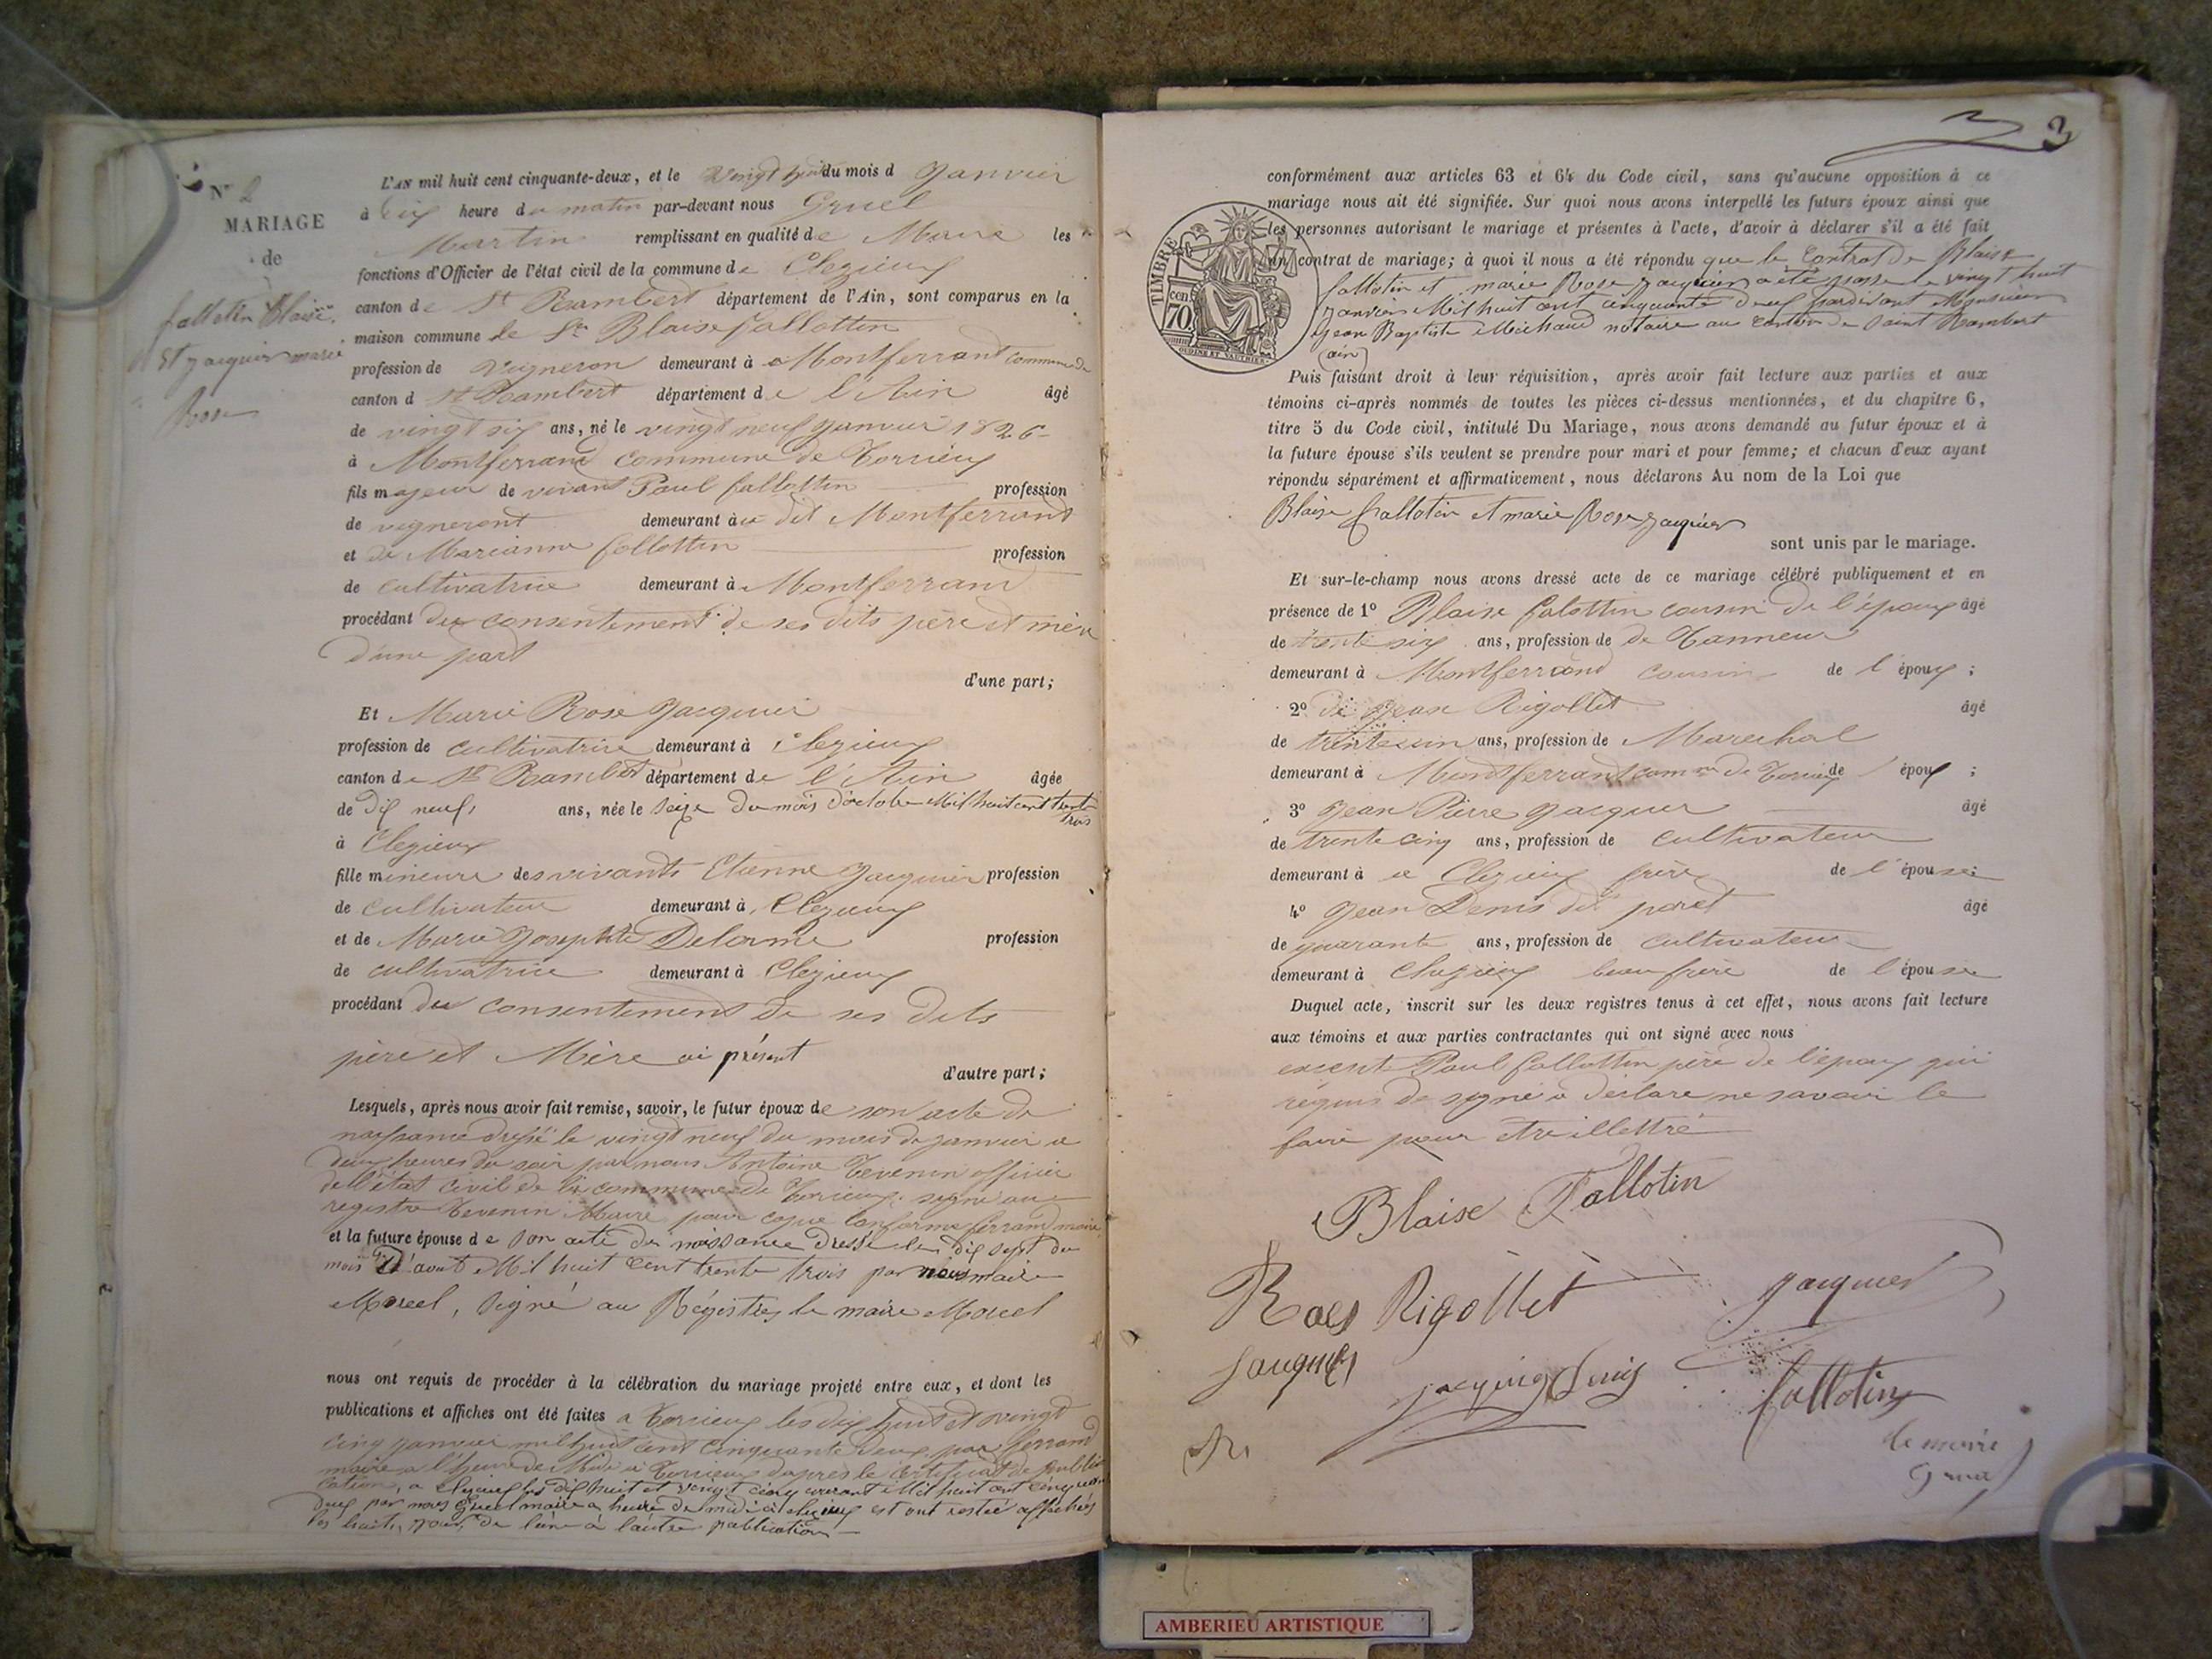 N° 2
MARIAGE
de
fallotin Blaise
et jacquier marie
Rose
L'AN mil huit cent cinquante-deux, et le vingt huit du mois d Janvier
à dix heure du matin par-devant nous Gruel
Martin remplissant en qualité de Maire les
fonctions d'Officier de l'état civil de la commune de Clezieux
canton de St Rambert département de l'Ain, sont comparus en la
maison commune le Sr Blaise fallottin
profession de vigneron demeurant à a Montferrand commune de
canton d St Rambert département de l'Ain âgé
de vingt six ans, né le vingt neuf janvier 1826
à Montferrand commune de Torcieux
fils majeur de vivant Paul fallottin profession
de vigneront demeurant à au dit Montferrand
et de Marianne follottin profession
de cultivatrice demeurant à Montferrand
procédant du consentement de ses dits père et mère
d'une part
d'une part;
Et Marie Rose Jacquier
profession de cultivatrice demeurant à Clezieux
canton de St Rambert département de l'Ain âgée
de dix neuf ans, née le seize du mois d'octobre Mil huit cent trente
trois
à Clezieux
fille mineure des vivants Etienne Jacquier profession
de cultivateur demeurant à Clezieux
et de Marie Josephte Delorme profession
de cultivatrice demeurant à Clezieux
procédant du consentement de ses dits
père et Mère ci présent
d'autre part;
Lesquels, après nous avoir fait remise, savoir, le futur époux de son acte de
naissance dressé le vingt neuf du mois de janvier a
deux heures du soir par nous Antoine Tevenin officier
de l'état civil de la commune de Torcieux signé au
registre Tevenin Maire pour copie conforme ferrand maire
et la future épouse de son acte de naissance dressé le dix sept du
mois d'avout Mil huit cent trente trois par nous maire
Morcel, signé au Régistres le maire Morcel
nous ont requis de procéder à la célébration du mariage projeté entre eux, et dont les
publications et affiches ont été faites a Torcieux les dix huit et vingt
cinq janvier mil huit cent cinquante deux par ferrand
maire a l'heure de Midi a Torcieux d'après le certificat de publi
cation, a clezieux les dix huit et vingt cinq courant Mil huit cent cinquante
deux par nous Gruel maire a heure de midi à clezieux est ont restée affichées
les huit jours de l'une à l'autre publication
3
TIMBRE
cen
70
OUDINE ET VAUTHIER
conformément aux articles 63 et 64 du Code civil, sans qu'aucune opposition à ce
mariage nous ait été signifiée. Sur quoi nous avons interpellé les futurs époux ainsi que
les personnes autorisant le mariage et présentes à l'acte, d'avoir à déclarer s'il a été fait
un contrat de mariage; à quoi il nous a été répondu que le Contrat de Blaise
fallotin et marie Rose jacquier a été passé le vingt huit
janvier Mil huit cent cinquante deux pardevant Monsieur
Jean Baptiste Michaud notaire au canton de Saint Rambert
(ain)
Puis faisant droit à leur réquisition, après avoir fait lecture aux parties et aux
témoins ci-après nommés de toutes les pièces ci-dessus mentionnées, et du chapitre 6,
titre 5 du Code civil, intitulé Du Mariage, nous avons demandé au futur époux et à
la future épouse s'ils veulent se prendre pour mari et pour femme; et chacun d'eux ayant
répondu séparément et affirmativement, nous déclarons Au nom de la Loi que
Blaise fallotin et marie Rose jacquier
sont unis par le mariage.
Et sur-le-champ nous avons dressé acte de ce mariage célébré publiquement et en
présence de 1° Blaise falottin cousin de l'époux âgé
de trente six ans, profession de de Tanneur
demeurant à Montferrand cousin de l'époux;
2° de Jean Rigollet âgé
de trente un ans, profession de Marechal
demeurant à Montferrand comne de Torcieux de l'époux;
3° Jean Pierre Jacquier âgé
de trente cinq ans, profession de cultivateur
demeurant à a Clezieux frère de l'épouse;
4° Jean Denis dit poret âgé
de quarante ans, profession de cultivateur
demeurant à Clezieux beau frère de l'épouse
Duquel acte, inscrit sur les deux registres tenus à cet effet, nous avons fait lecture
aux témoins et aux parties contractantes qui ont signé avec nous
excepte Paul fallottin père de l'époux qui
requis de signé a déclaré ne savoir le
faire pour etre illettré
Blaise Fallotin
Roes Rigollet jacquier
jauquier jacquier Denis fallotin
le maire
Gruel
AMBERIEU ARTISTIQUE